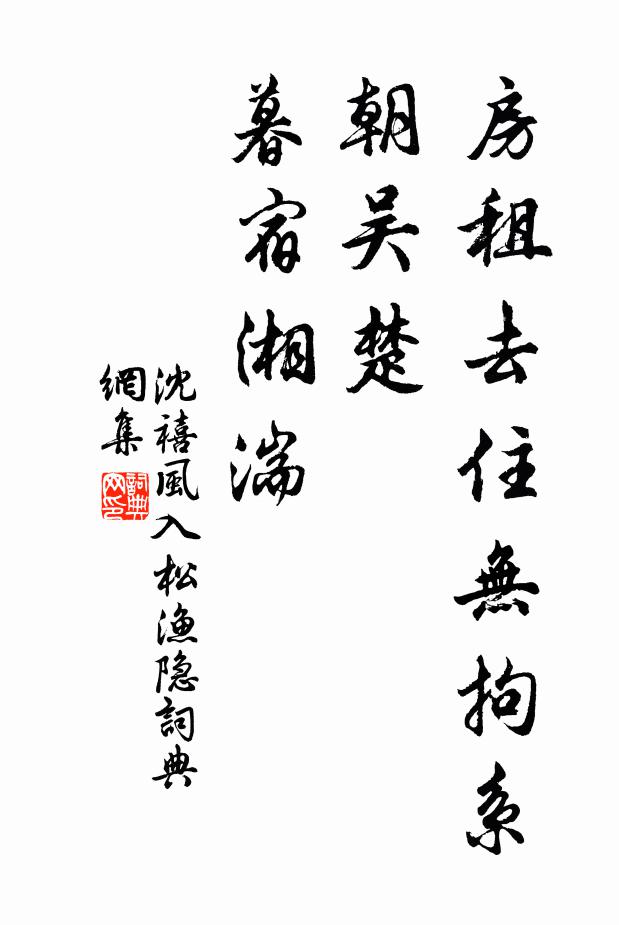 房租去住無拘系
朝吴楚
暮宿湘湍
沈禧風入松漁隐詞典
網集
詞典
网印